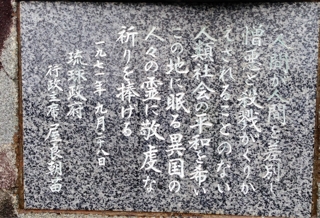 人間が人間を差別し
憎悪と殺戮がくりか
えされることのない
人類社会の平和を希い
この地に眠る異国の
人々の霊に敬虔な
祈りを捧げる
一九七一年九月二八日
琉球政府
行政主席屋良朝苗